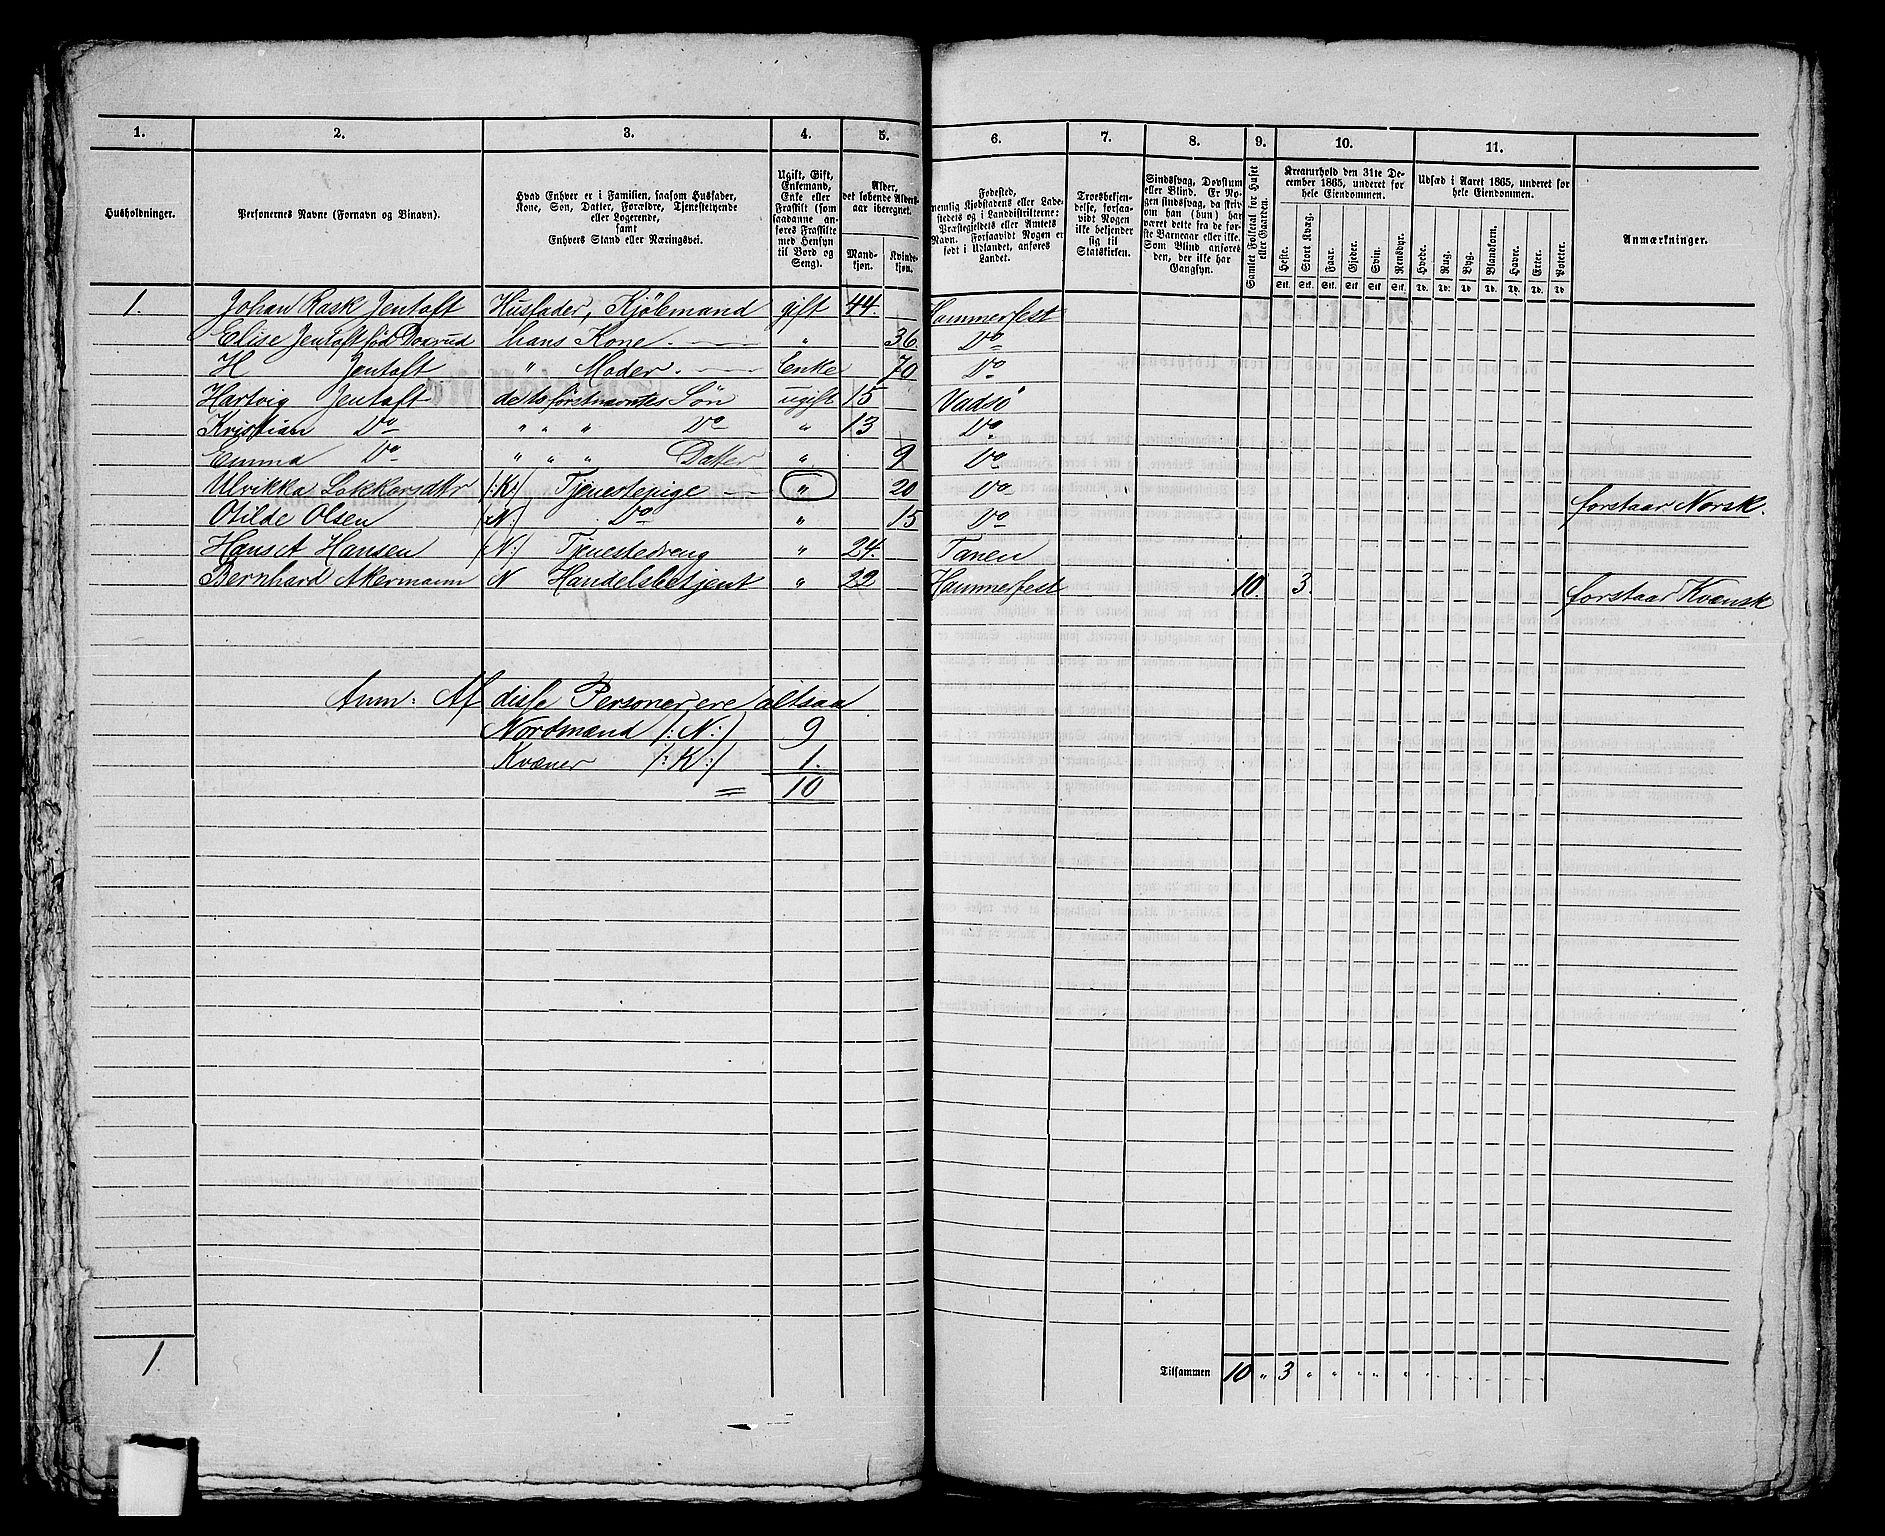 1. 2. 3. 4. 5. 6. 7. 8. 9. 10. 11.
Husholdninger.
Personernes Navne (Fornavn og Binavn).
Hvad Enhver er i Familien, saasom Husfader,
Kone, Søn, Datter, Forældre, Tjenestetyende
eller Logerende,
samt
Enhvers Stand eller Næringsvei.
Ugift, Gift,
Enkemand,
Enke eller
Fraskilt (som
saadanne an-
føres Fraskilte
med Hensyn
til Bord og
Seng).
Alder,
det løbende Alders-
aar iberegnet.
Mand-
kjøn.
Kvinde-
kjøn.
Fødested,
nemlig Kjøbstadens eller Lade-
stedets og i Landdistrikterne:
Præstegjeldets eller Amtets
Navn. Forsaavidt Nogen er
født i Udlandet, anføres
Landet.
Troesbekjen-
delse, forsaa-
vidt Nogen
ikke bekjender
sig til
Statskirken.
Sindssvag, Døvstum
eller Blind. Er No-
gen sindssvag, da skriv
om han (hun) har
været dette fra de før-
ste Barneaar eller ikke.
Som Blind anføres
den, der ikke har
Gangsyn.
Samlet Folketal for Huset
eller Gaarden.
Kreaturhold den 31te De-
cember 1865, underet for
hele Eiendommen.
Heste. Stort Kvæg. Faar. Gjeder. Svin. Rensdyr.
Stk. Stk. Stk. Stk. Stk. Stk.
Udsæd i Aaret 1865, underet for
hele Eiendommen.
Hvede. Rug. Byg. Blandkorn. Havre. Erter. Poteter.
Td. Td. Td. Td. Td. Td. Td.
Anmærkninger.
1. Johan Rask Jentoft Husfader, Kjøbmand gift 44. Hammerfest
Elise Jentoft fød Doxrud hans Kone " 36. Do
H Jentoft " Moder Enke 70 Do
Hartvig Jentoft de to førstnævntes Søn ugift 15 Vadsø
Kristian Do " " " Do " 13 Do
Emma Do " " " Datter " 9 Do
Ulrikka Lokkarsdtr /:K:/ Tjenestepige " 20 Do forstaar Norsk.
Otilde Olsen /:N:/ Do " 15 Do
Hans A Hansen /:N:/ Tjenestedreng " 24. Tanen
Bernhard Akermann N Handelsbetjent " 22 Hammerfest 10. 3. forstaar Kvænsk
Anm: Af disse Personer ere altsaa
Nordmænd /:N:/ 9
Kvæner /:K:/ 1.
= 10
1.
Tilsammen 10 " 3 " " " " "